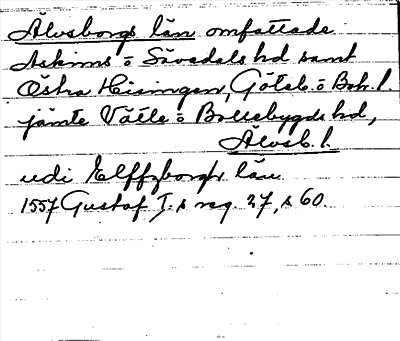 Älvsborgs län omfattade
Askims o Sävedals hd samt
Östra Hisingen, Göteb. o Boh. l.
jämte Vätle o Bollebygds hd,
Älvsb. l.
udi Elffzborgz län
1557 Gustaf I.s reg. 27, s 60.